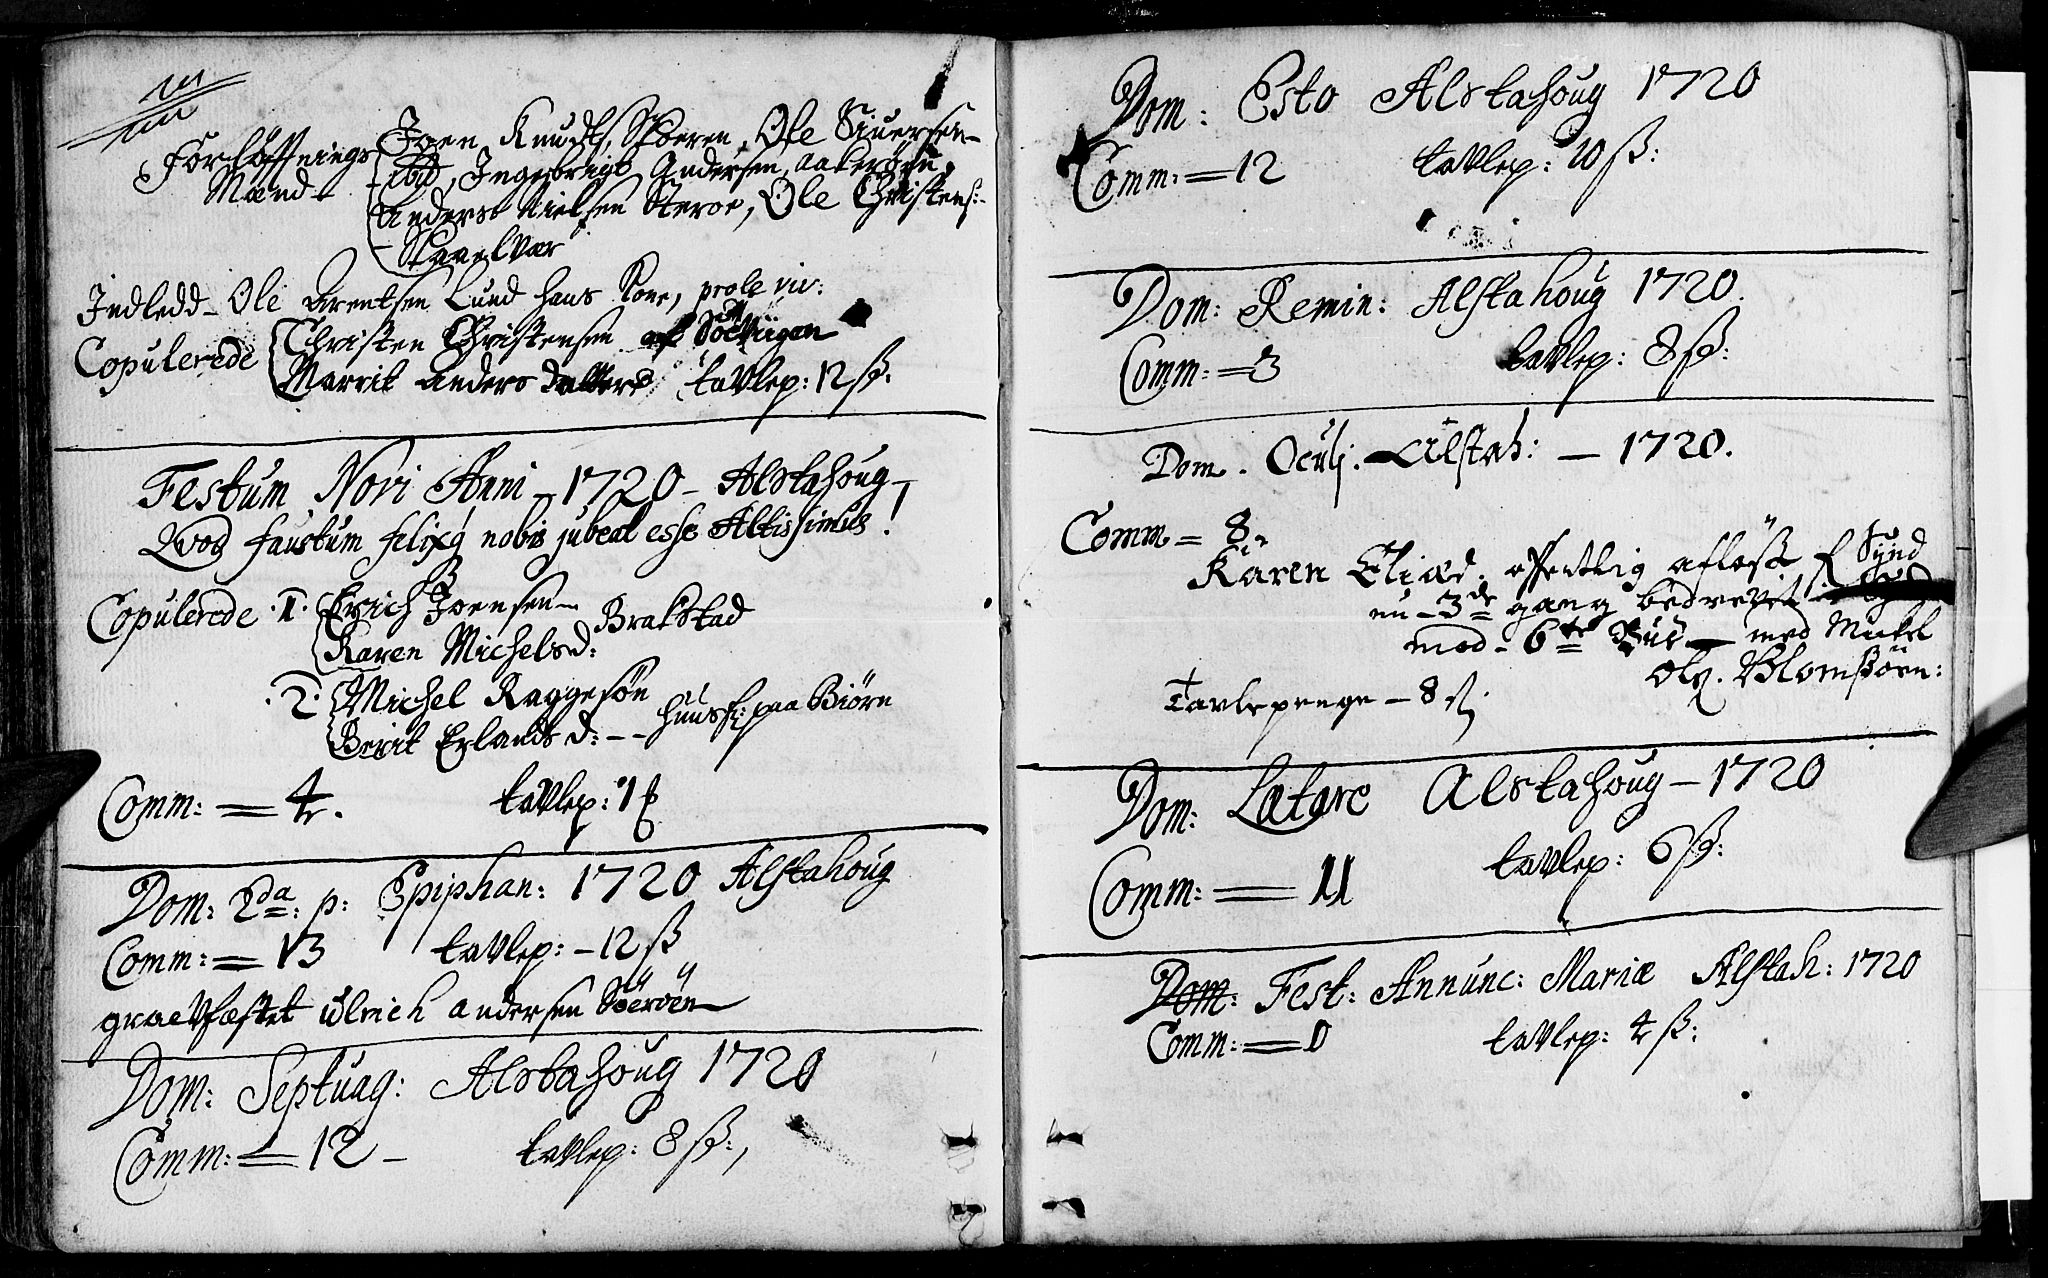 Forløffnings
Mænd
Joen Knuds, Skoeren, Ole Siuersen
ibid, Ingebrigt Andersen aakerøen,
Anders Nielsen Steroe, Ole Christens:
Skaalvær
Indledd - Ole Arentsen Lund hans Kone, prole viv:
Copulerede Christen Christensen af Søeviigen
Marrit anders datter tavlep: 12 ß.
Festum Novi Anni 1720 - Alstahoug -
Qvod faustum felixq nobis jubeat esse Altissimus!
Copulerede .1. Erich Joensen
Karen Michelsd: Brakstad
.2. Michel Raggesøn
Berit Erlandsd: - - huusf: paa Biørn
Comm: = 4. tavlep: 1
Dom: 2da: p: Epiphan: 1720 Alstahoug
Comm: = 13 tavlep: - 12 ß
graevfæstet Ulrich andersen Söeröen
Dom: Septuag: Alstahoug 1720
Comm: = 12 - tavlep: 8 ß:,
Dom: Esto Alstahoug 1720
Comm: = 12 tavlep: 10 ß:
Dom: Remin: Alstahoug 1720.
Comm: = 3 tavlep: 8 ß:
Dom. Oculj. Alstah: - 1720.
Comm = 8.
Karen Eliæd. offentlig afløst f Synd
nu - 3de gang bedrevet
mod - 6te Bud - med Mickel
Ols. Blomsøen:
Tavlepenge - 8 ß
Dom: Lætare Alstahoug - 1720
Comm: = 11 tavlep: 6 ß:
Dom: Fest: Annunc: Mariæ Alstah: 1720
Comm: = 0 tavlep: 4 ß: